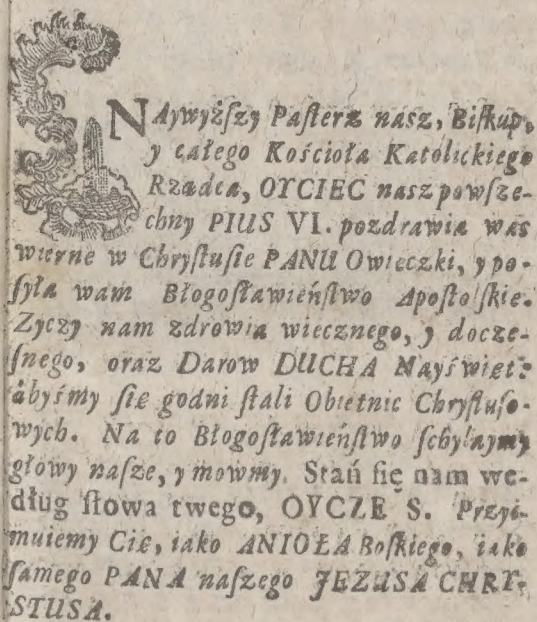 NAywyżſzy Paſterz nasz, Biſkup,
y całego Kościoła Katolickiego
Rządca, OYCIEC nasz powſze-
chny PIUS VI. pozdrawia was
wierne w Chryſtuſie PANU Owieczki, y po-
ſyła wam Błogoſławieńſtwo Apoſtolſkie.
Zyczy nam zdrowia wiecznego, y docze-
ſnego, oraz Darow DUCHA Nayświęt:
abyśmy ſię godni ſtali Obietnic Chryſtuſo-
wych. Na to Błogoſławieńſtwo ſchylaymy
głowy naſze, y mowmy. Stań ſię nam we-
dług ſłowa twego, OYCZE S. Przyi-
muiemy Cię, iako ANIOŁA Boſkiego, iako
ſamego PANA naſzego JEZUSA CHRY-
STUSA.